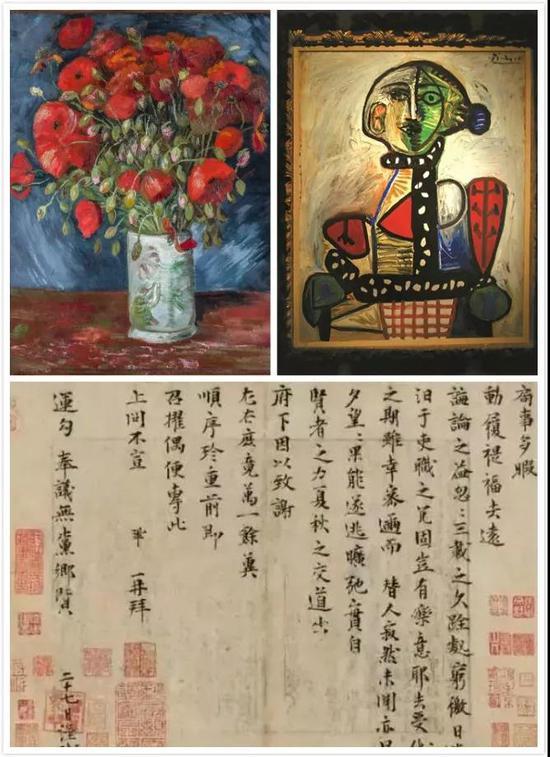 Picasso
局事多暇
動履禔福去遠
誨論之益忽〻三載之久跧處窮徼日
汩于吏職之冗固豈有樂意耶去受
之期雖幸密邇而替人寂然未聞亦
夕望〻果能遂逃曠弛實自
賢者之力夏秋之交道出
府下因以致謝
左右庶竟萬一餘冀
順序珍重前即
召擢偶便專此
上問不宣 鞏 再拜
運勾 奉議無黨鄉賢
二十七日謹